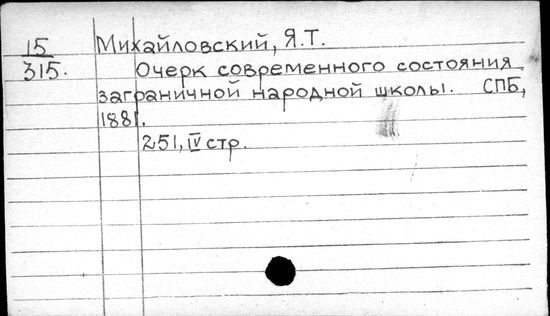 15 Михайловский, Я.Т.
315. Очерк современного состояния
заграничной народной школы. СПБ,
1881.
251, IV стр.